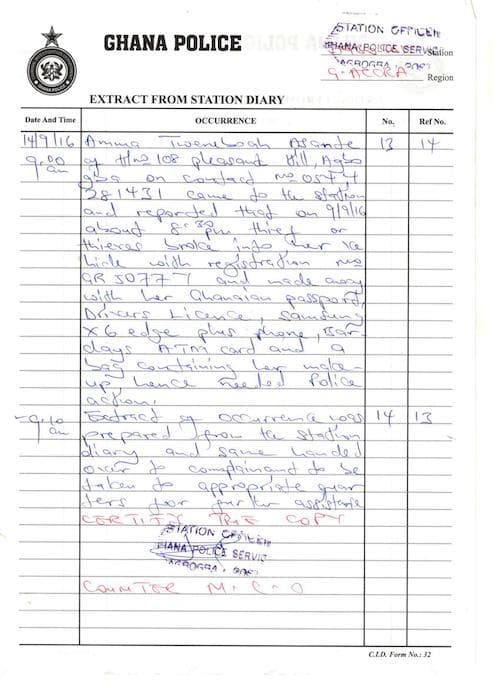 GHANA POLICE
STATION OFFICER
GHANA POLICE SERVIC
Station
G. ACCRA
Region
EXTRACT FROM STATION DIARY
Date And Time OCCURRENCE No. Ref No.
14/9/16 Amma Tweneboah Asante 13 14
9.00 of H/no 108 pleasant Hill, Agbo
am gba on contact no 0544
281431 came to the station
and reported that on 9/9/16
about 8:30 pm thief or
thieves broke into her ve
hicle with registration no
GR 5077 and made away
with her Ghanaian passport,
Drivers Licence, Samsung
X6 edge plus phone, Bar-
clays ATM card and a
bag containing her make-
up, hence needed Police
action.
- 9.10 Extract of occurrence was 14 13
am prepared from the station
diary and same handed
over to complainant to be
taken to appropriate quar
ters for further assistance
CERTIFY TRUE COPY
STATION OFFICER
GHANA POLICE SERVIC
COUNTER N.C.O
C.I.D. Form No.: 32